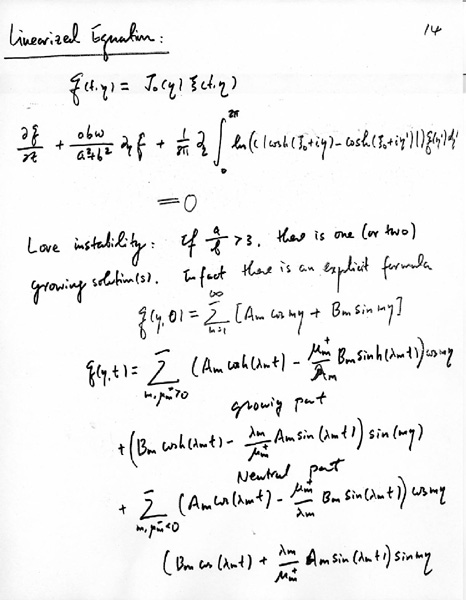 14
Linearized Equation:
f(t,η) = J₀(η) ξ(t,η)
∂f/∂t + abω/(a²+b²) ∂η f + 1/2π ∂η ∫₀^2π ln(c|cosh(ξ₀+iη) − cosh(ξ₀+iη')|) f(η') dη'
= 0
Love instability: If a/b > 3, there is one (or two)
growing solution(s). In fact there is an explicit formula
f(η,0) = Σ_{m=1}^∞ [Am cos mη + Bm sin mη]
f(η,t) = Σ_{m, μm⁻>0} (Am cosh(λmt) − μm⁺/λm Bm sinh(λmt)) cos mη
growing part
+ (Bm cosh(λmt) − λm/μm⁺ Am sin(λmt)) sin(mη)
Neutral part
+ Σ_{m, μm⁻<0} (Am cos(λmt) − μm⁺/λm Bm sin(λmt)) cos mη
(Bm cos(λmt) + λm/μm⁺ Am sin(λmt)) sin mη